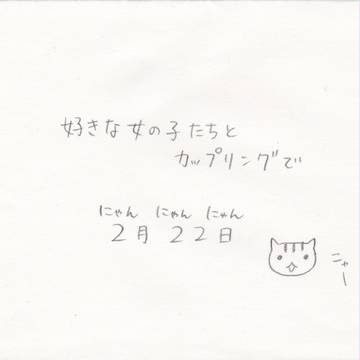 好きな女の子たちと
カップリングで
にゃん にゃん にゃん
2月 22日
ニャー